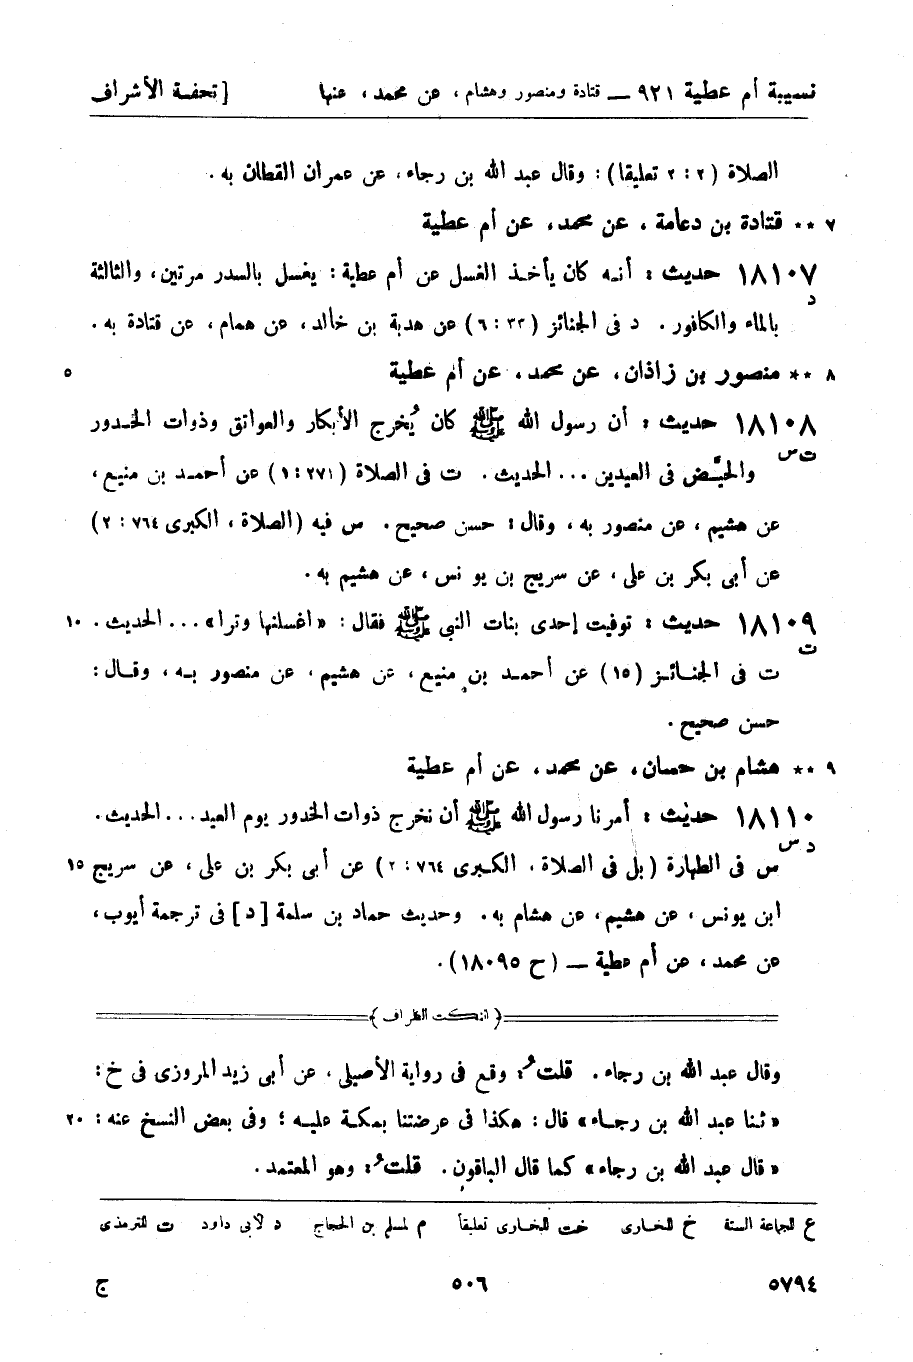 نسيبة أم عطية ٩٢١ — قتادة ومنصور وهشام، عن محمد، عنها [ تحفة الأشراف
الصلاة (٢ : ٢ تعليقا) : وقال عبد الله بن رجاء، عن عمران القطان به .
٧ ** قتادة بن دعامة ، عن محمد، عن أم عطية
١٨١٠٧ حديث : أنه كان يأخذ الغسل عن أم عطية : يغسل بالسدر مرتين، والثالثة
د
بالماء والكافور . د فى الجنائز (٣٣ : ٦) عن هدبة بن خالد، عن همام، عن قتادة به .
٨ ** منصور بن زاذان، عن محمد، عن أم عطية ٥
١٨١٠٨ حديث : أن رسول الله ﷺ كان يُخرج الأبكار والعواتق وذوات الخدور
ت س
والحيَّض فى العيدين ... الحديث . ت فى الصلاة (٢٧١ : ١) عن أحمد بن منيع،
عن هشيم، عن منصور به، وقال : حسن صحيح . س فيه (الصلاة، الكبرى ٧٦٤ : ٢)
عن أبى بكر بن على، عن سريج بن يونس، عن هشيم به .
١٨١٠٩ حديث : توفيت إحدى بنات النبى ﷺ فقال : «اغسلنها وترا» ... الحديث . ١٠
ت
ت فى الجنائز (١٥) عن أحمد بن منيع، عن هشيم، عن منصور به، وقال :
حسن صحيح .
٩ ** هشام بن حسان، عن محمد، عن أم عطية
١٨١١٠ حديث : أمرنا رسول الله ﷺ أن نخرج ذوات الخدور يوم العيد ... الحديث .
د س
س فى الطهارة (بل فى الصلاة، الكبرى ٧٦٤ : ٢) عن أبى بكر بن على، عن سريج ١٥
ابن يونس، عن هشيم، عن هشام به . وحديث حماد بن سلمة [د] فى ترجمة أيوب،
عن محمد، عن أم عطية — (ح ١٨٠٩٥) .
( النكت الظراف )
وقال عبد الله بن رجاء . قلتُ : وقع فى رواية الأصيلى، عن أبى زيد المروزى فى خ :
«ثنا عبد الله بن رجاء» قال : هكذا فى عرضتنا بمكة عليه؛ وفى بعض النسخ عنه : ٢٠
«قال عبد الله بن رجاء» كما قال الباقون . قلتُ : وهو المعتمد .
ع للجماعة الستة خ للبخارى خت للبخارى تعليقاً م لمسلم بن الحجاج د لأبى داود ت للترمذى
٥٧٩٤ ٥٠٦ ج